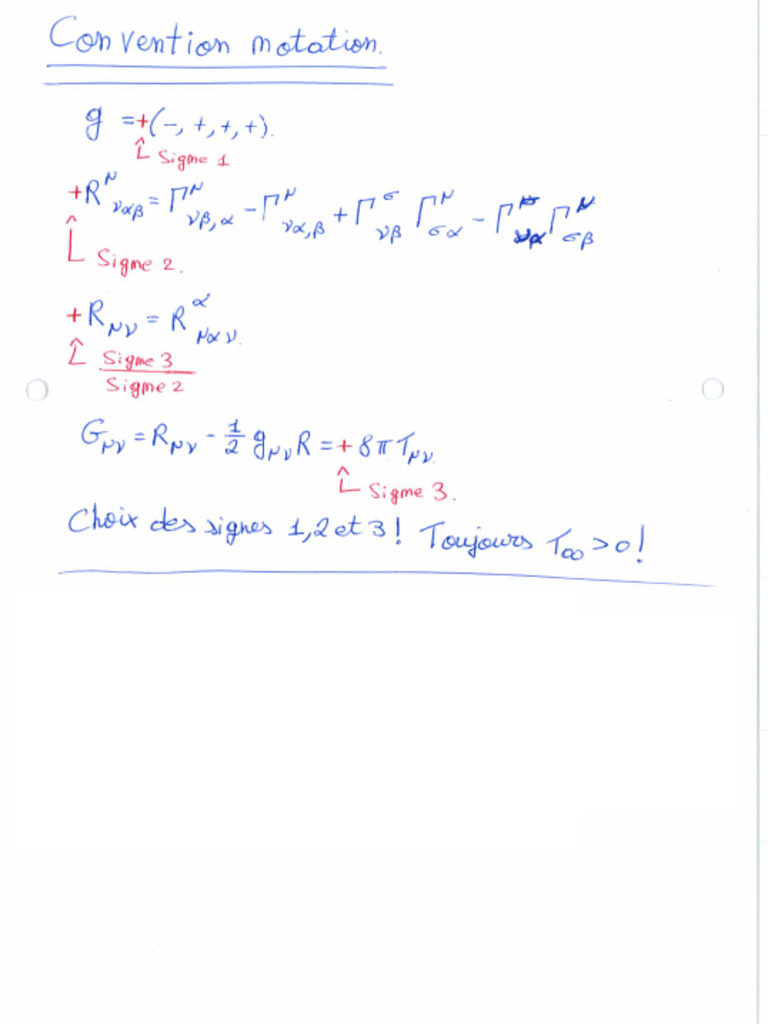 Convention notation.
g = +(-, +, +, +).
Signe 1
+R^μ_{ναβ} = Γ^μ_{νβ,α} - Γ^μ_{να,β} + Γ^σ_{νβ} Γ^μ_{σα} - Γ^σ_{να} Γ^μ_{σβ}
Signe 2.
+R_{μν} = R^α_{μαν}.
Signe 3
Signe 2
G_{μν} = R_{μν} - 1/2 g_{μν} R = + 8π T_{μν}
Signe 3.
Choix des signes 1, 2 et 3! Toujours T_{00} > 0!